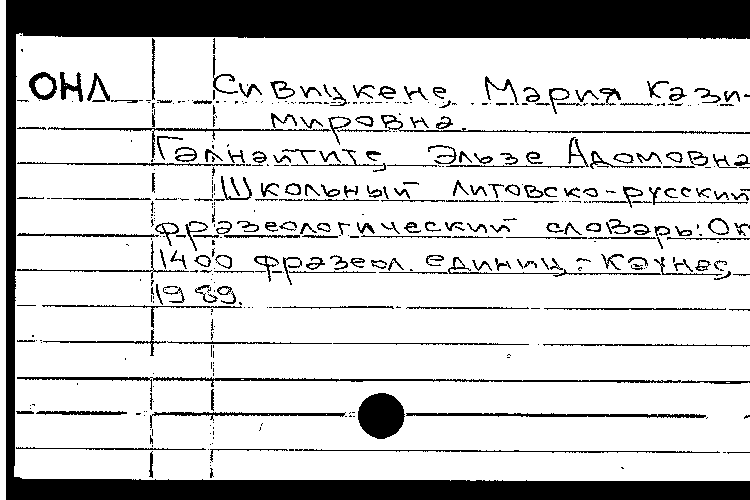 ОНЛ Сивицкене, Мария Кази-
мировна.
Галнайтите, Эльзе Адомовна
Школьный литовско-русский
фразеологический словарь: Ок
1400 фразеол. единиц. - Каунас,
1989.